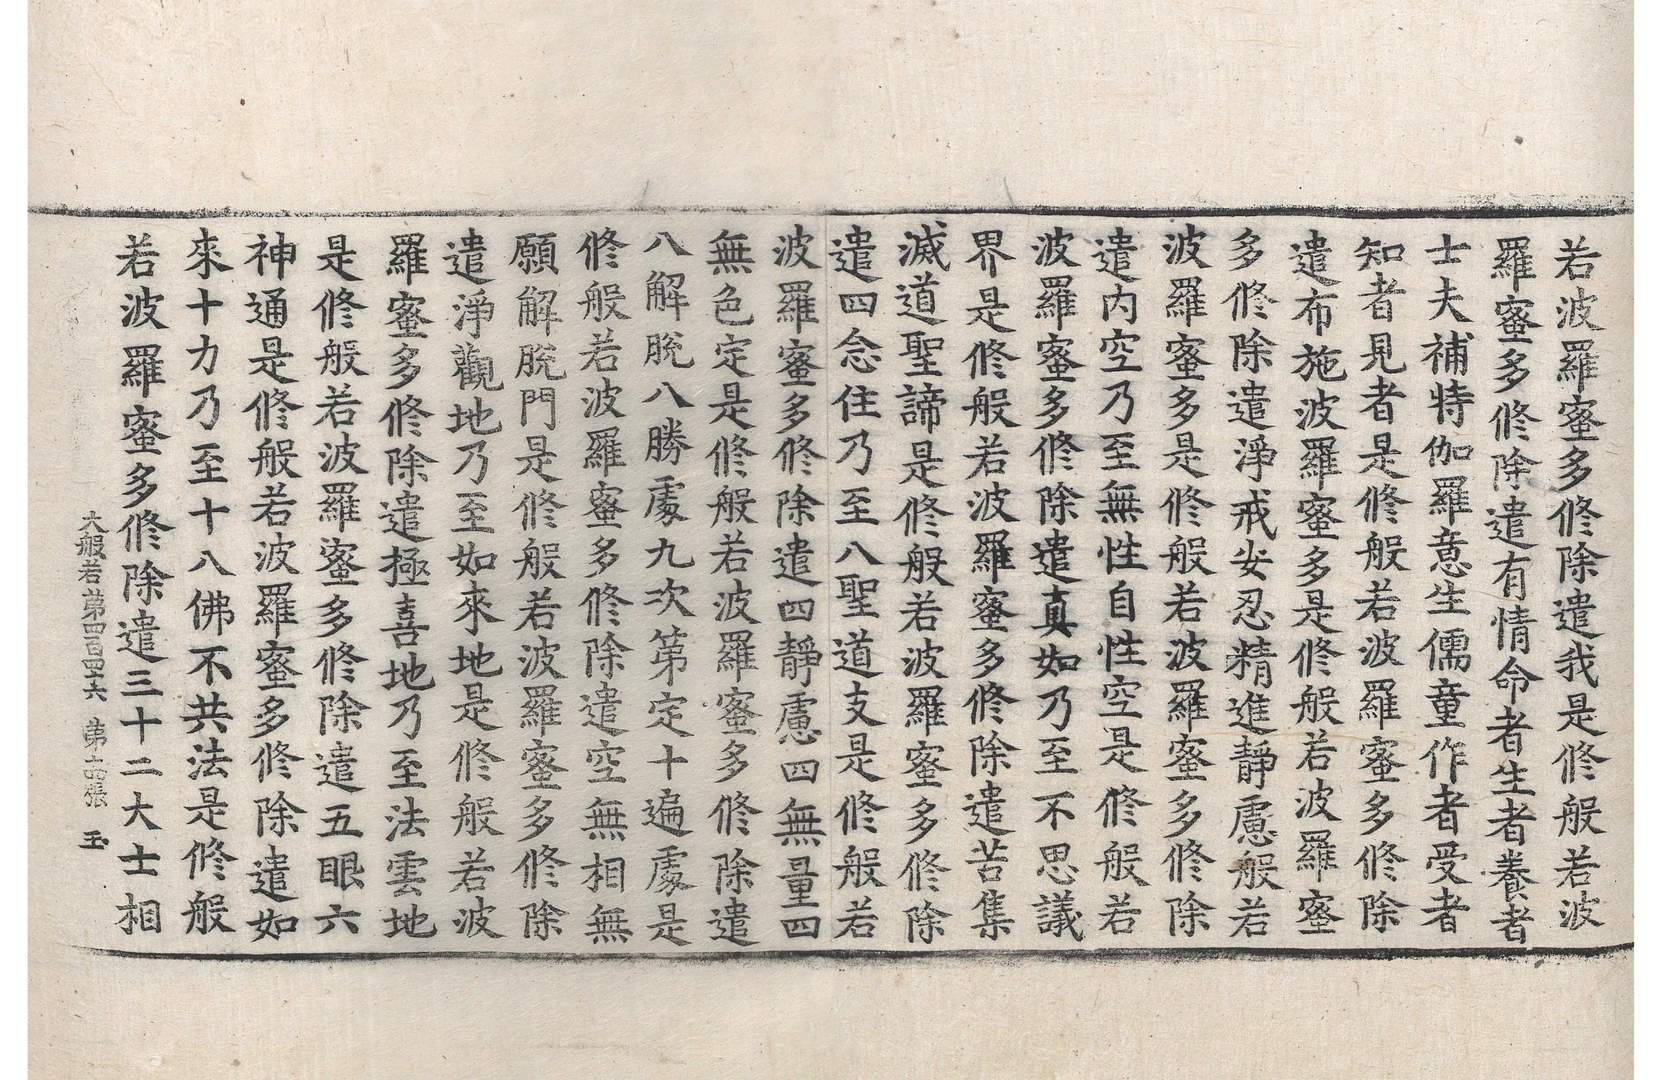 若波羅蜜多修除遣我是修般若波
羅蜜多修除遣有情命者生者養者
士夫補特伽羅意生儒童作者受者
知者見者是修般若波羅蜜多修除
遣布施波羅蜜多是修般若波羅蜜
多修除遣淨戒安忍精進靜慮般若
波羅蜜多是修般若波羅蜜多修除
遣内空乃至無性自性空是修般若
波羅蜜多修除遣真如乃至不思議
界是修般若波羅蜜多修除遣苦集
滅道聖諦是修般若波羅蜜多修除
遣四念住乃至八聖道支是修般若
波羅蜜多修除遣四靜慮四無量四
無色定是修般若波羅蜜多修除遣
八解脫八勝處九次第定十遍處是
修般若波羅蜜多修除遣空無相無
願解脫門是修般若波羅蜜多修除
遣淨觀地乃至如來地是修般若波
羅蜜多修除遣極喜地乃至法雲地
是修般若波羅蜜多修除遣五眼六
神通是修般若波羅蜜多修除遣如
來十力乃至十八佛不共法是修般
若波羅蜜多修除遣三十二大士相
大般若第四百四十六 第十四張 玉